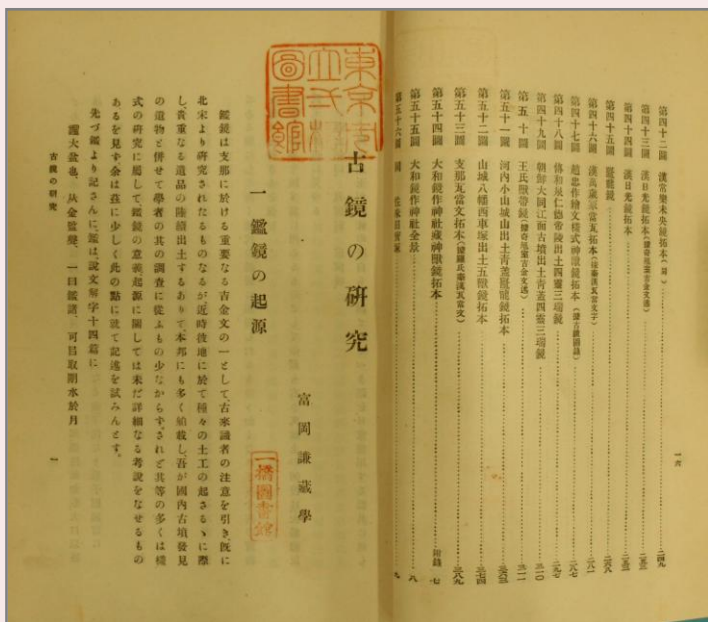 第四十二圖　漢常樂未央鏡拓本(同)……二四九
第四十三圖　漢日光鏡拓本(據奇觚室吉金文述)……二五三
第四十四圖　漢日光鏡拓本……二五三
第四十五圖　夔龍鏡……二六八
第四十六圖　漢萬歲瓦當瓦拓本
第四十七圖　趙忠作繪文樣式神獸鏡拓本……二八七
第四十八圖　傳和泉仁德帝陵出土四靈三瑞鏡……二九七
第四十九圖　朝鮮大同江面古墳出土青蓋四靈三瑞鏡……三一〇
第五十圖　王氏獸帶鏡(據奇觚室吉金文述)……三一一
第五十一圖　河內小山城山出土青蓋盤龍鏡拓本……三六三
第五十二圖　山城八幡西車塚出土五獸鏡拓本……三七四
第五十三圖　支那瓦當文拓本(據羅氏秦漢瓦當文)……三八九
第五十四圖　大和鏡作神社藏神獸鏡拓本……附錄 七
第五十五圖　大和鏡作神社全景……八
第五十六圖　同……九
一六
東京市立一橋圖書館
古鏡の硏究
富岡謙藏學
一橋圖書館
一　鑑鏡の起源
鑑鏡は支那に於ける重要なる古金文の一として、古來識者の注意を引き、既に
北宋より硏究されたるものなるが近時彼地に於て種々の土工の起さるゝに際
し、貴重なる遺品の陸續出土するありて、本邦にも多く舶載し、吾が國內古墳發見
の遺物と倂せて學者の其の調査に從ふもの少なからず、されど其等の多くは樣
式の硏究に屬して、鑑鏡の意義起源に關しては未だ詳細なる考說をなせるもの
あるを見ず余は茲に少しく此の點に就て記述を試みんとす。
先づ鑑より記さんに、鑑は、說文解字十四篇に
鑑大盆也、从金監聲、一曰鑑諸、可㠯取明水於月
古鏡の硏究
一